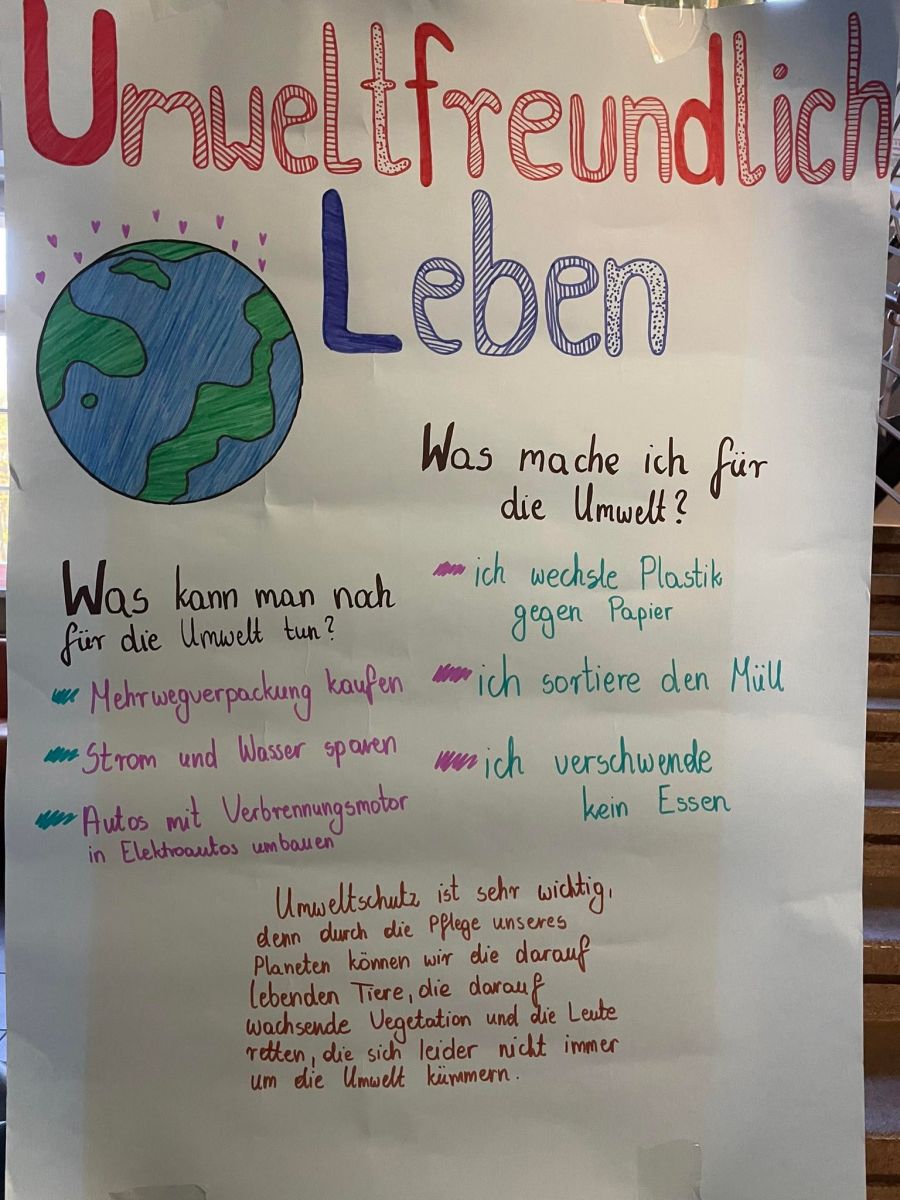 Umweltfreundlich
Leben
Was mache ich für
die Umwelt?
ich wechsle Plastik
gegen Papier
ich sortiere den Müll
ich verschwende
kein Essen
Was kann man noch
für die Umwelt tun?
Mehrwegverpackung kaufen
Strom und Wasser sparen
Autos mit Verbrennungsmotor
in Elektroautos umbauen
Umweltschutz ist sehr wichtig,
denn durch die Pflege unseres
Planeten können wir die darauf
lebenden Tiere, die darauf
wachsende Vegetation und die Leute
retten, die sich leider nicht immer
um die Umwelt kümmern.